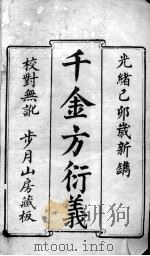 光緒己卯歲新鐫
千金方衍義
校對無訛
步月山房藏板
www.toutian.com